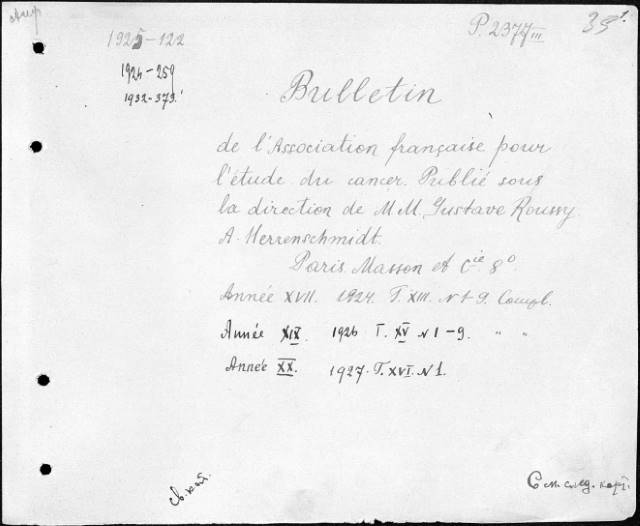 P. 2377 III
1925-122
1926-259
1932-373.
Bulletin
de l'Association française pour
l'étude du cancer. Publié sous
la direction de M.M. Gustave Roussy
A. Herrenschmidt.
Paris. Masson et Cie. 8°.
Année XVII. 1924. T. XIII. N 1-9. Compl.
Année XIX. 1926 T. XV N 1-9. " "
Année XX. 1927. T. XVI. N 1.
св. кат.
См. след. карт.